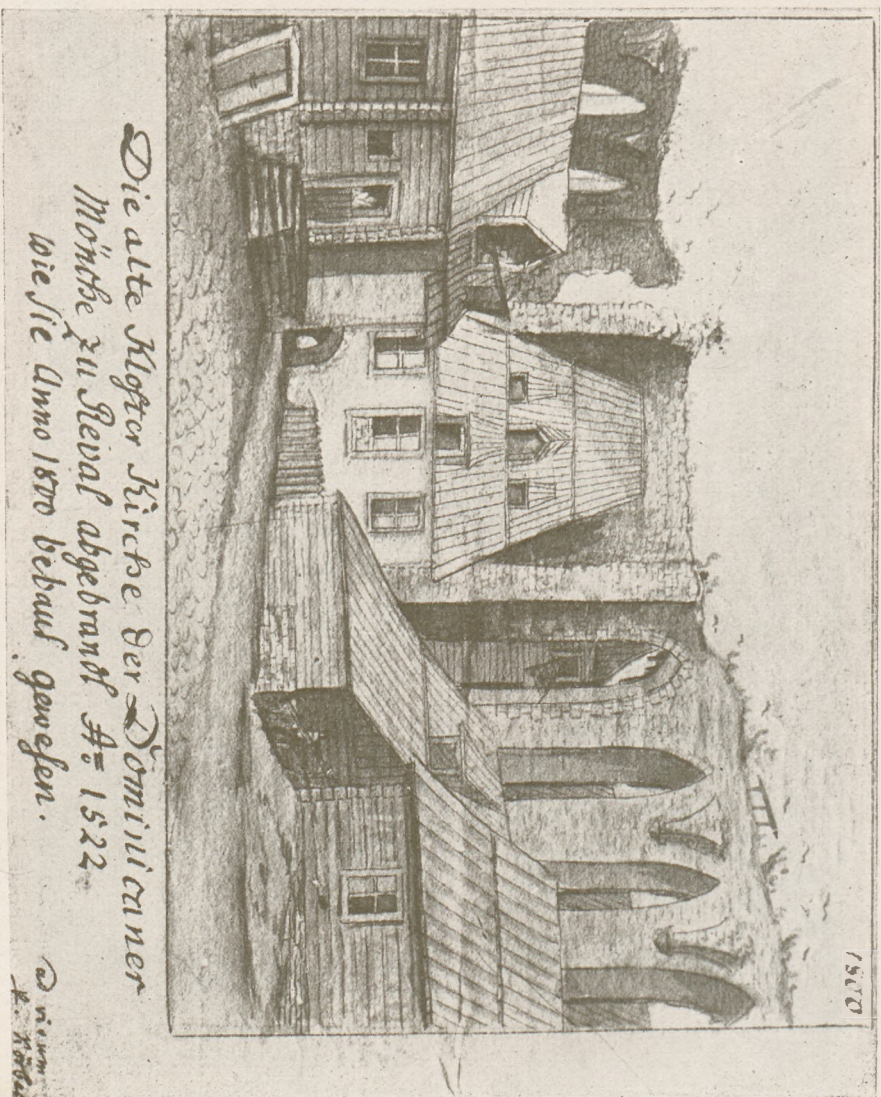 1800
Die alte Kloster Kirche der Dominicaner
Mönche zu Reval abgebrandt A= 1522
wie sie Anno 1800 bebaut gewesen.
ad vivum